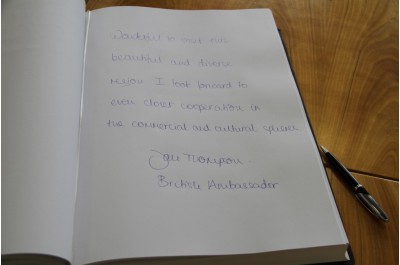 Wonderful to visit this
beautiful and diverse
region. I look forward to
even closer cooperation in
the commercial and cultural spheres
Jan Thompson
British Ambassador